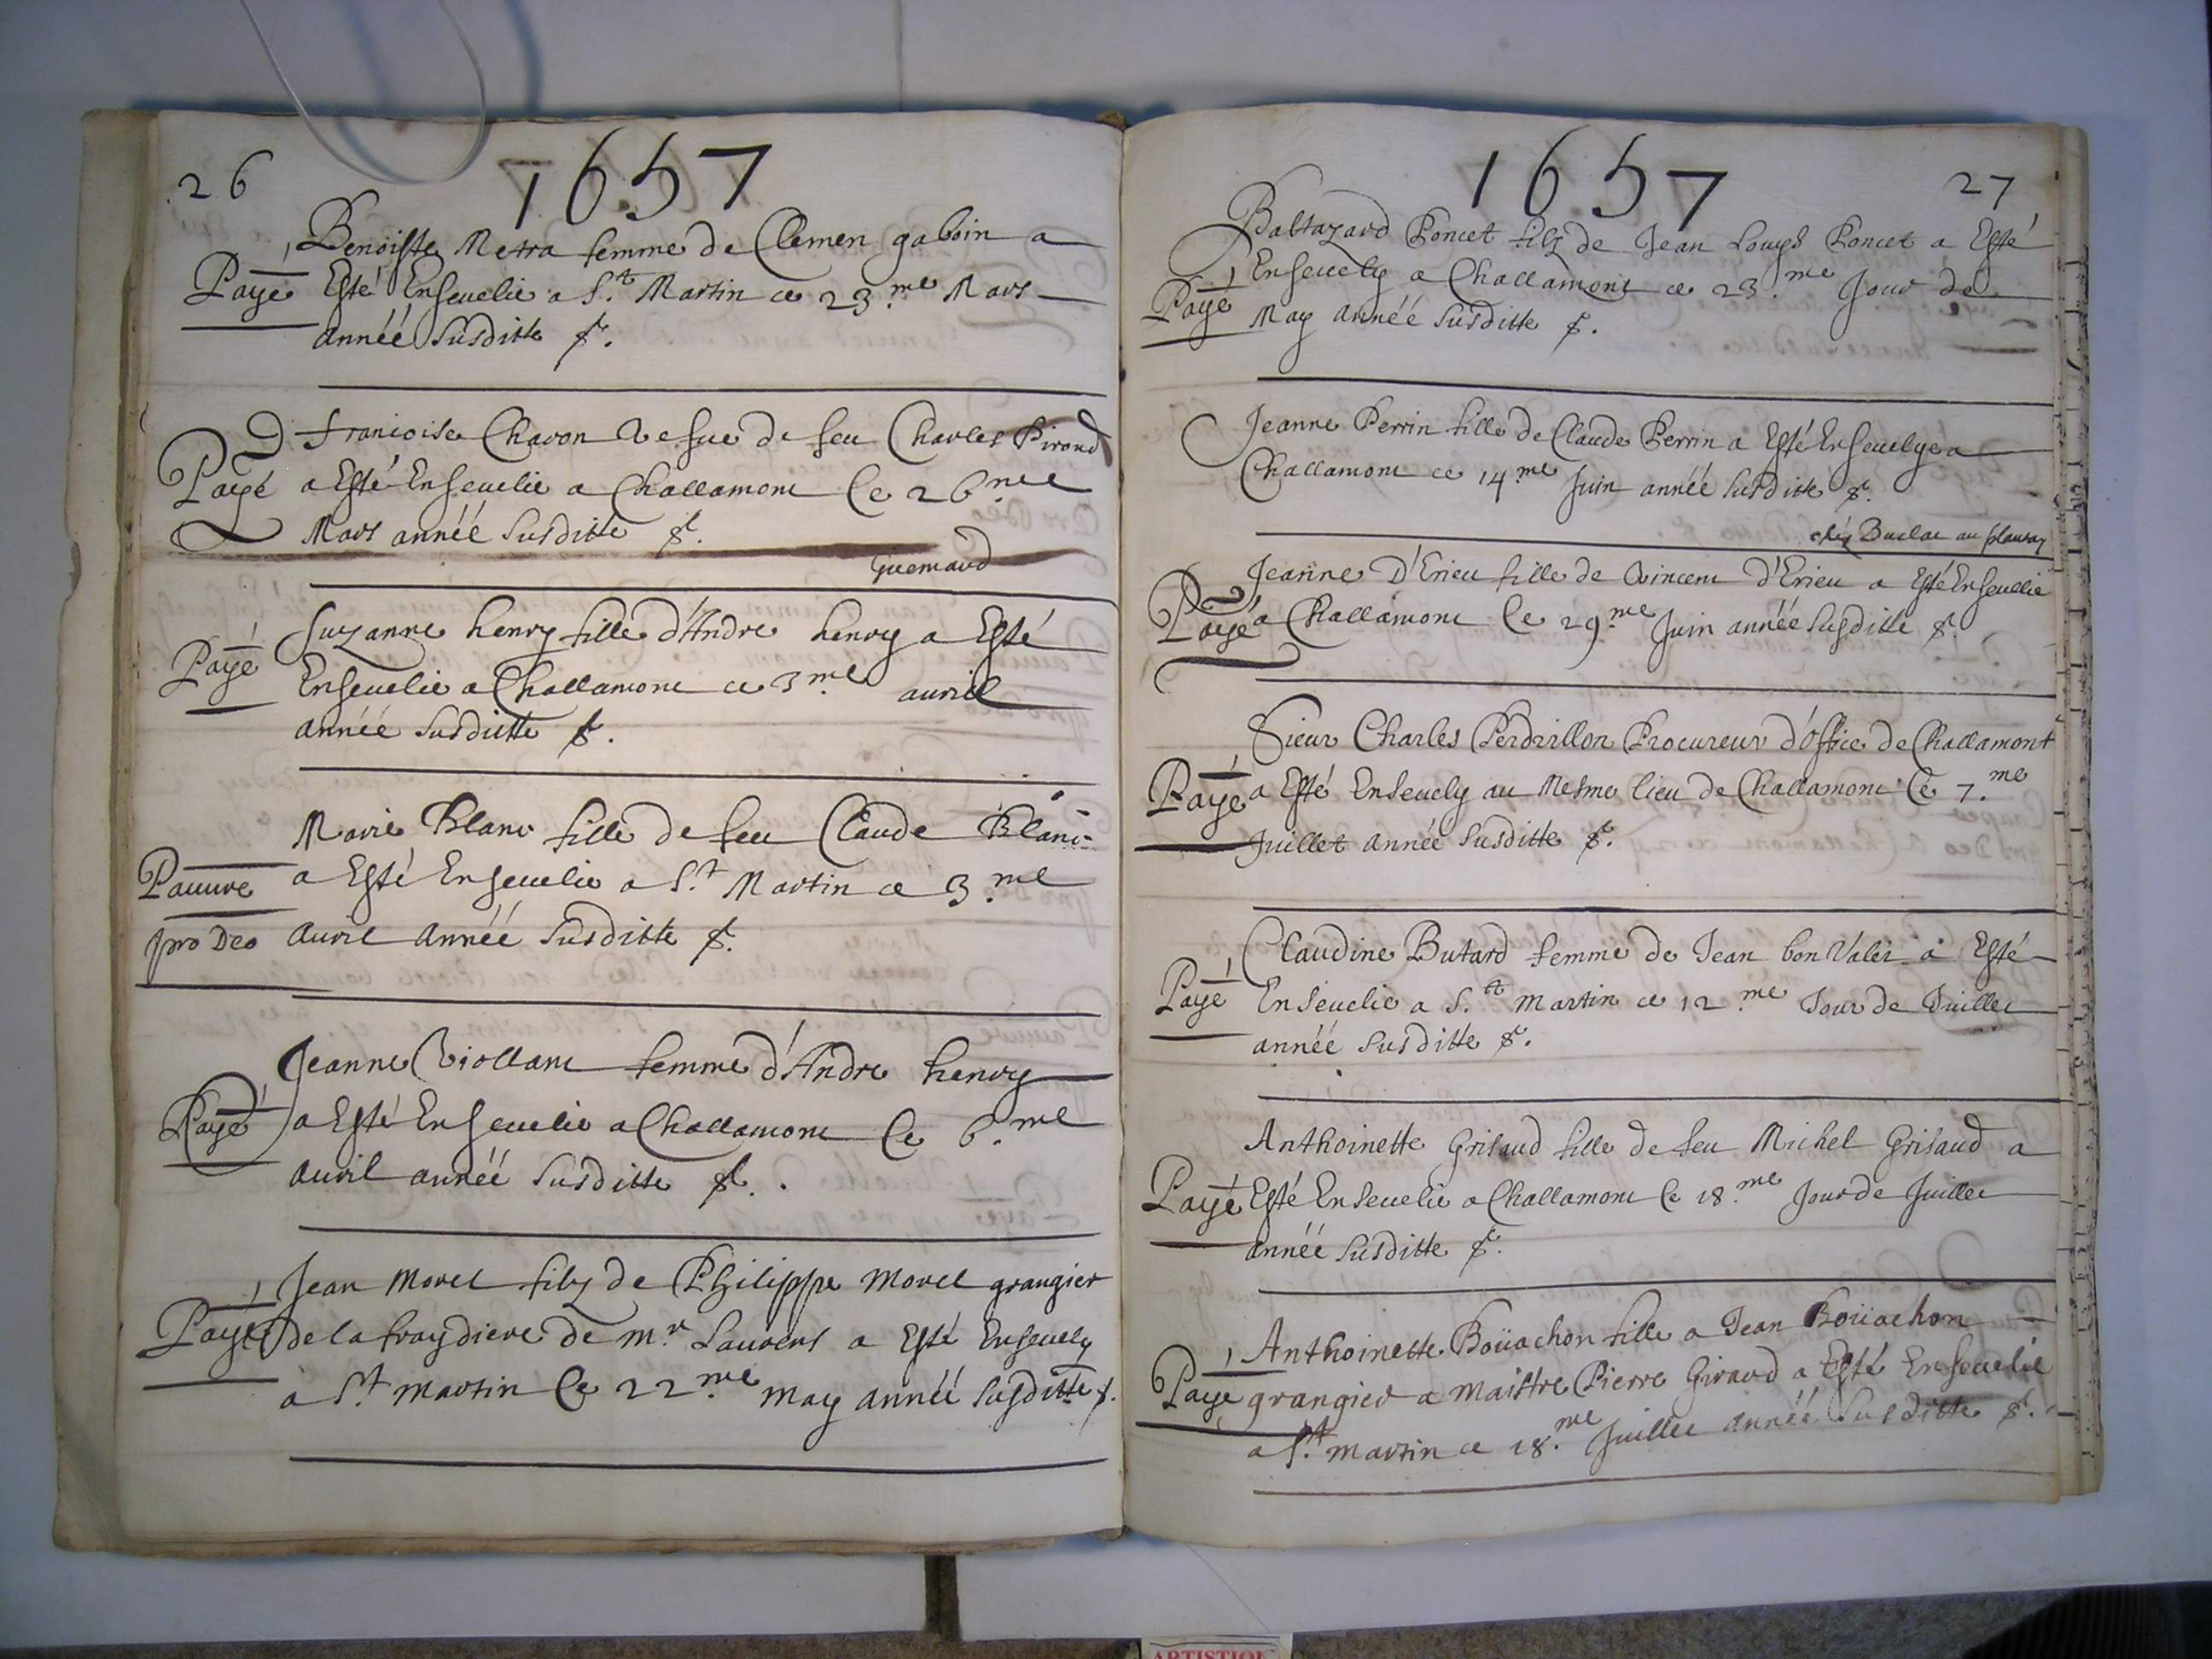 26
1657
Benoiste Metra femme de Clemen gaboin a
Payé Esté Ensevelie a S.t Martin ce 23.me Mars
année susditte
D. francoise Chavon vefue de feu Charles Pirond
Payé a Esté Ensevelie a Challamont Le 26me
Mars année susditte
Guemaud
Suzanne henry fille d'Andre henry a Esté
Payé Ensevelie a Challamont ce 3.me auril
année susditte
Marie Blanc fille de feu Claude Blanc
Pauure a Esté Ensevelie a S.t Martin ce 3.me
pro Deo auril année susditte
Jeanne Viollant femme d'Andre henry
Payé a Esté Ensevelie a Challamont Le 6.me
auril année susditte
Jean Morel filz de Philippe Morel grangier
Payé de la de m.r Laurens a Esté Ensevely
a S.t martin Le 22.me may année susditte
1657
27
Baltazard Poncet filz de Jean Louys Poncet a Esté
Ensevely a Challamont ce 23.me Jour de
Payé May année susditte
Jeanne Perrin fille de Claude Perrin a Esté Ensevelye a
Challamont ce 14.me Juin année susditte
chez au
Jeanne D'Erieu fille de Vincent d'Erieu a Esté Ensevelie
Payé a Challamont Le 29.me Juin année susditte
Sieur Charles Perdrillon Procureur d'office de Challamont
Payé a Esté Ensevely au Mesme lieu de Challamont Le 7.me
Juillet année susditte
Claudine Butard femme de Jean bon Valet a Esté
Payé Ensevelie a S.t martin ce 12.me Jour de Juillet
année susditte
Anthoinette Grisaud fille de feu Michel Grisaud a
Payé Esté Ensevelie a Challamont Le 18.me Jour de Juillet
année susditte
Anthoinette Boüachon fille a Jean Boüachon
Payé grangier a Maistre Pierre Giraud a Esté Ensevelie
a S.t martin ce 18.me Juillet année susditte